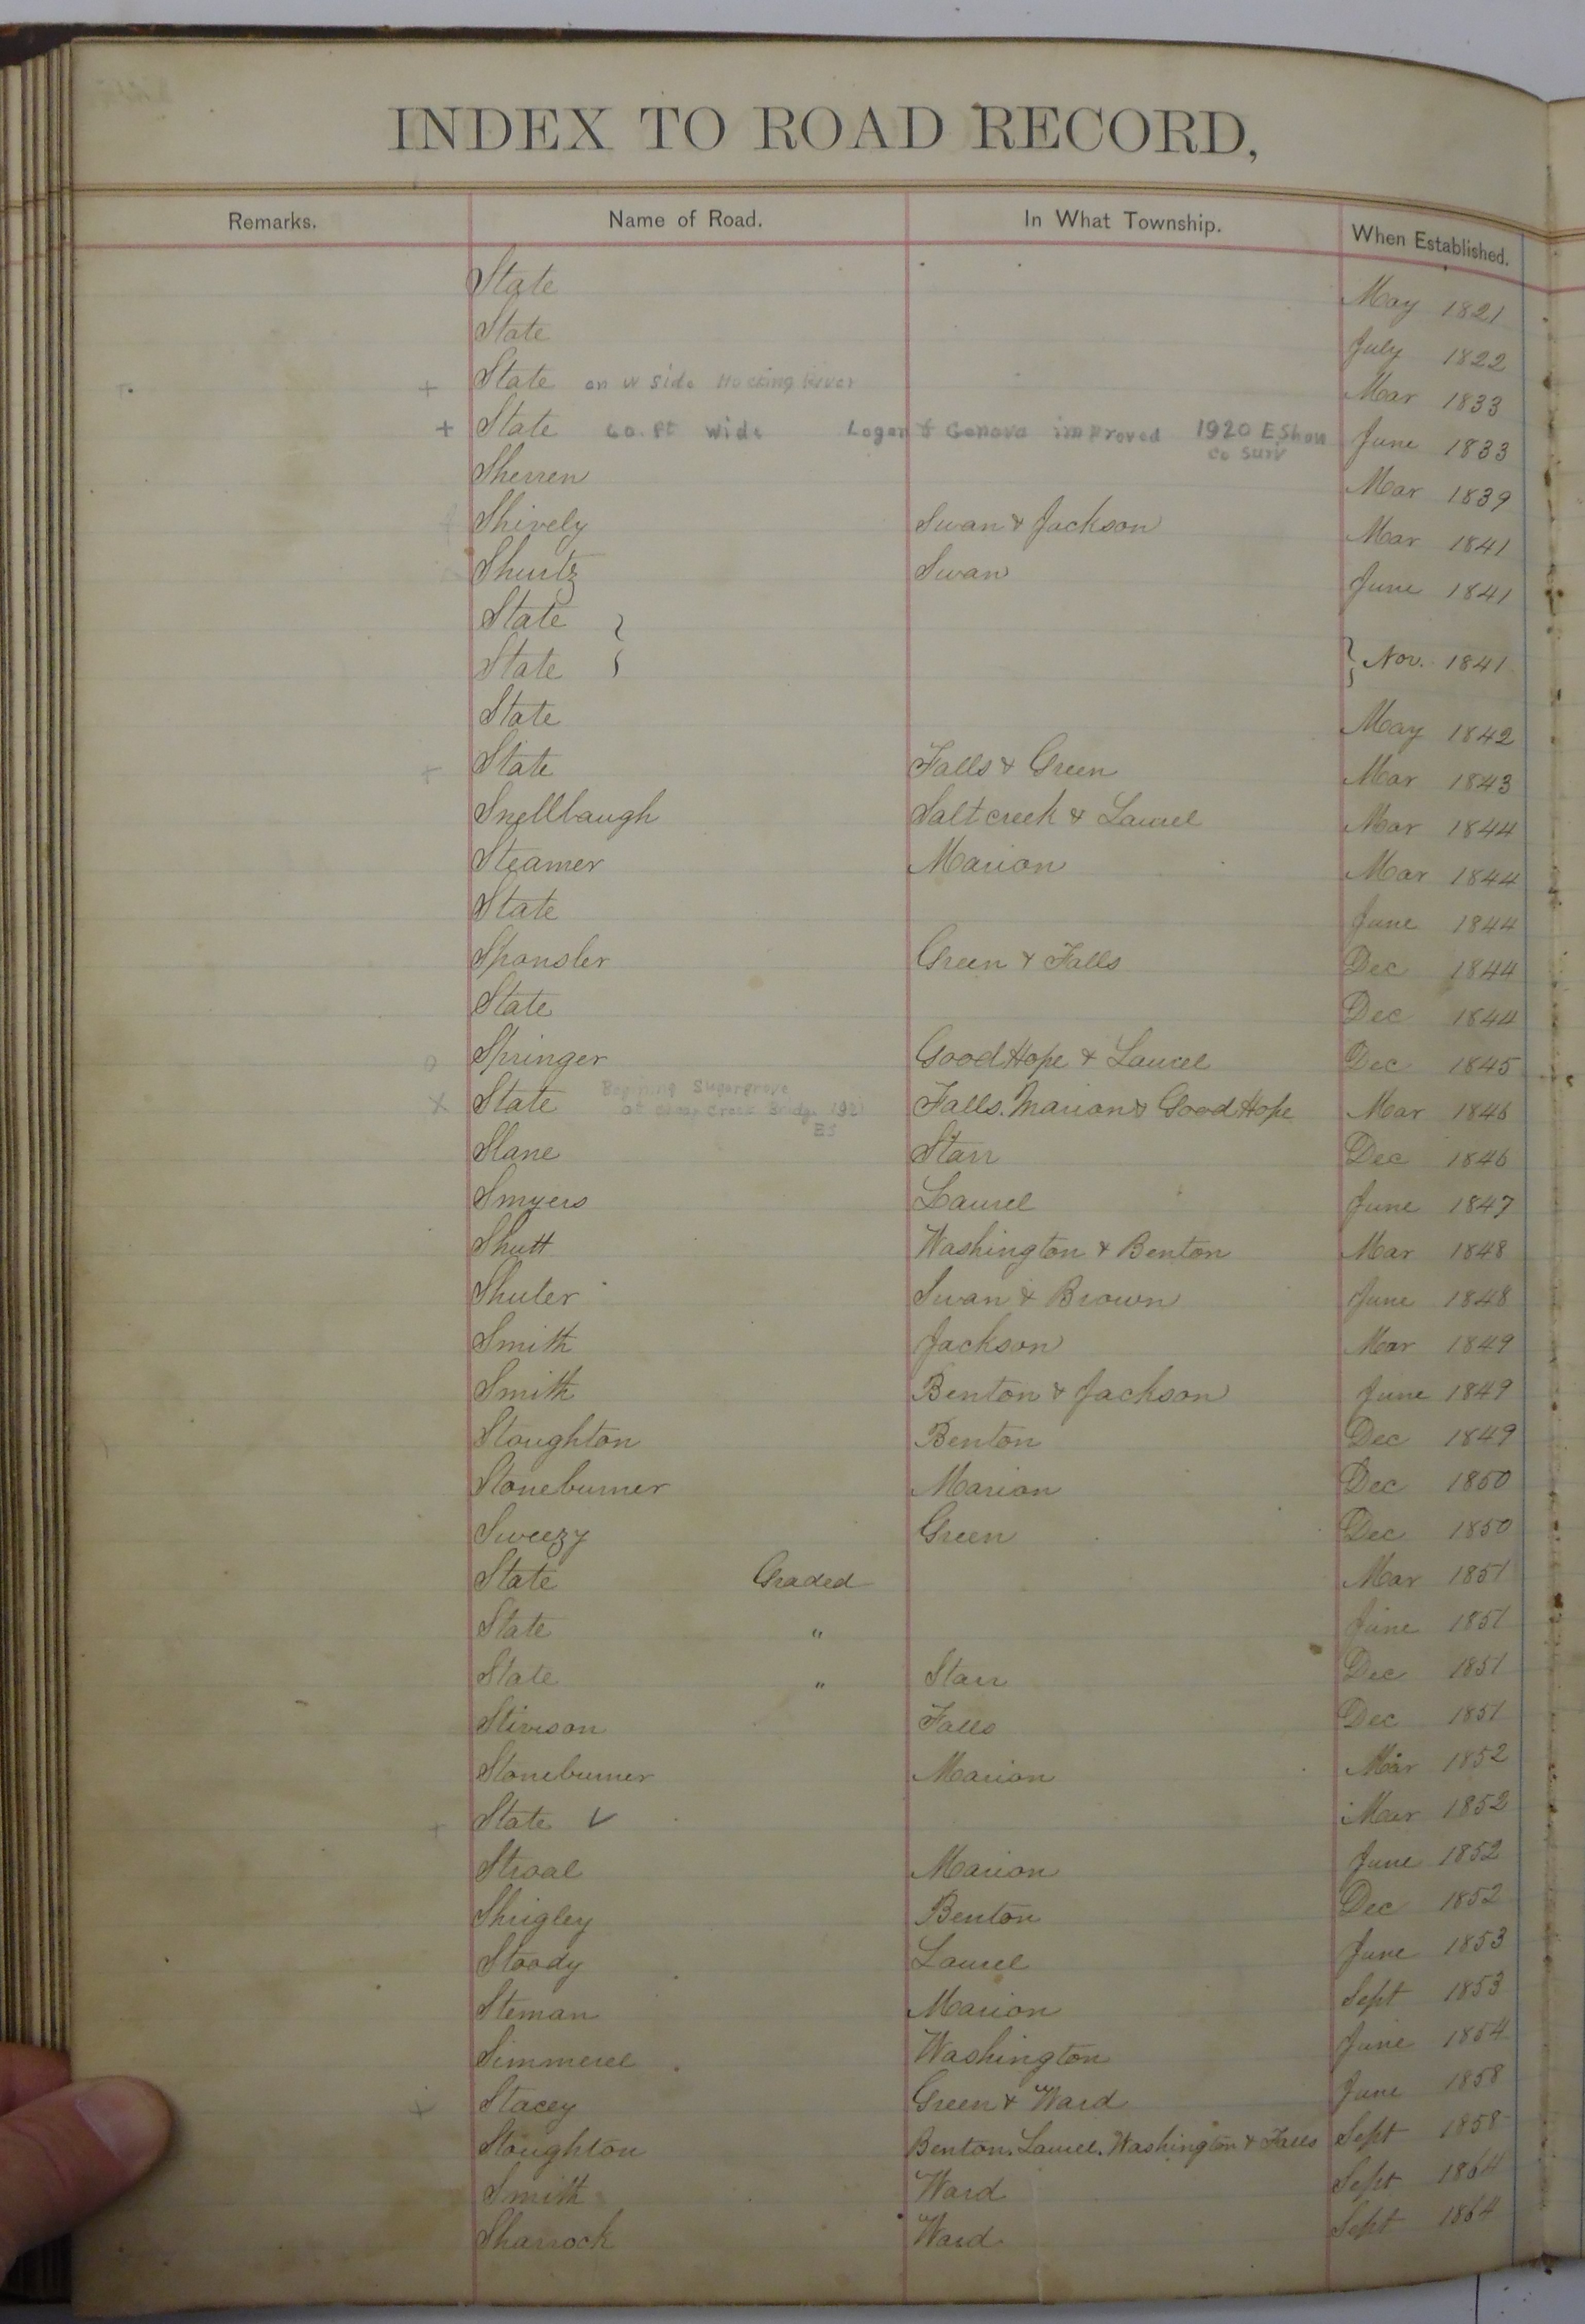 INDEX TO ROAD RECORD,
Remarks. Name of Road. In What Township. When Established.
State May 1821
State July 1822
+ State on W Side Hocking River Mar 1833
+ State 60. ft wide Logan & Geneva improved 1920 E Shaw June 1833
co surv
Sherren Mar 1839
Shively Swan & Jackson Mar 1841
Shurtz Swan June 1841
State }
State } } Nov. 1841
State May 1842
+ State Falls & Green Mar 1843
Snellbaugh Saltcreek & Laurel Mar 1844
Steamer Marion Mar 1844
State June 1844
Spansler Green & Falls Dec 1844
State Dec 1844
o Springer Good Hope & Laurel Dec 1845
Sugargrove
x State at Creek Bridge Falls. Marion & Good Hope Mar 1846
ES
Slane Starr Dec 1846
Smyers Laurel June 1847
Shutt Washington & Benton Mar 1848
Shuler Swan & Brown June 1848
Smith Jackson Mar 1849
Smith Benton & Jackson June 1849
Stoughton Benton Dec 1849
Stoneburner Marion Dec 1850
Sweezy Green Dec 1850
State Graded Mar 1851
State " June 1851
State " Starr Dec 1851
Stivison Falls Dec 1851
Stoneburner Marion Mar 1852
+ State ✓ Mar 1852
Stroal Marion June 1852
Shrigley Benton Dec 1852
Stoody Laurel June 1853
Steman Marion Sept 1853
Simmerel Washington June 1854
+ Stacey Green & Ward June 1858
Stoughton Benton. Laurel. Washington & Falls Sept 1858
Smith Ward Sept 1864
Sharrock Ward Sept 1864